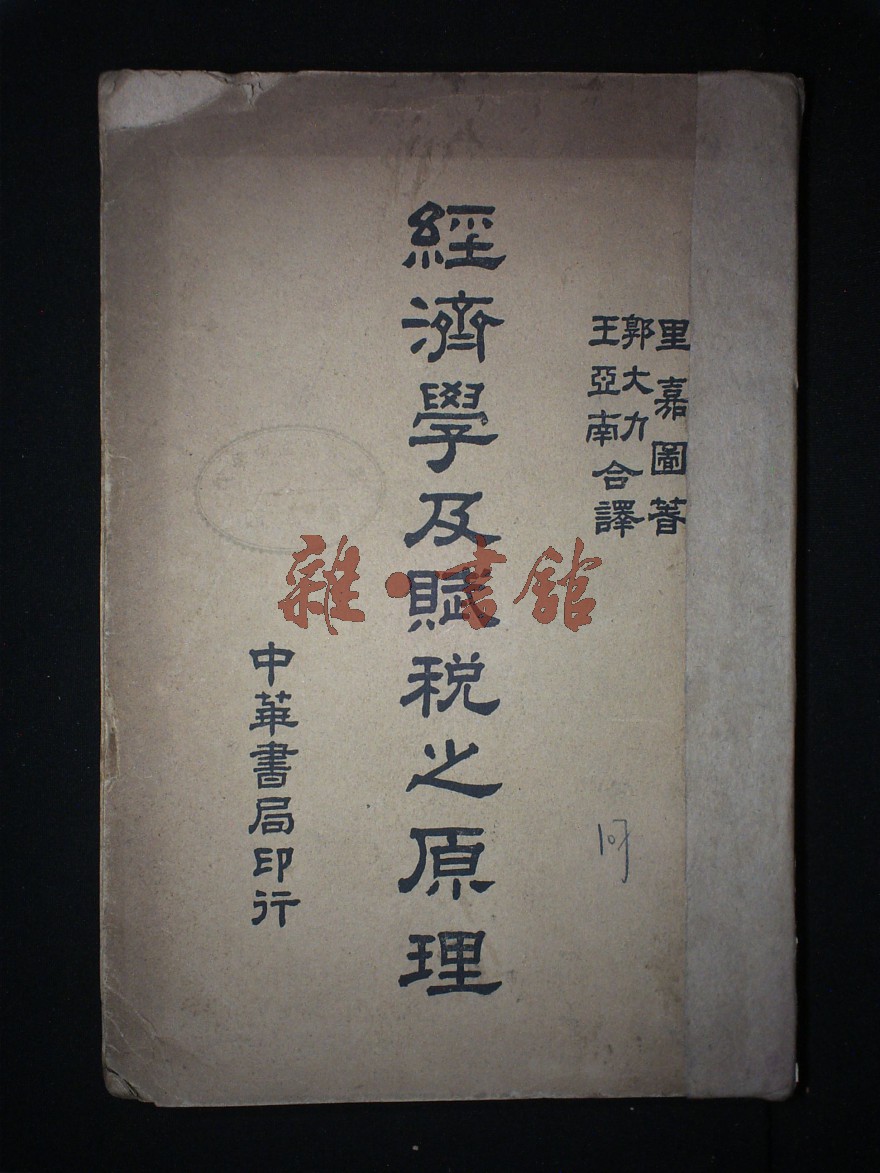 里嘉圖著
郭大力
王亞南合譯
經濟學及賦税之原理
中華書局印行
雜·書館